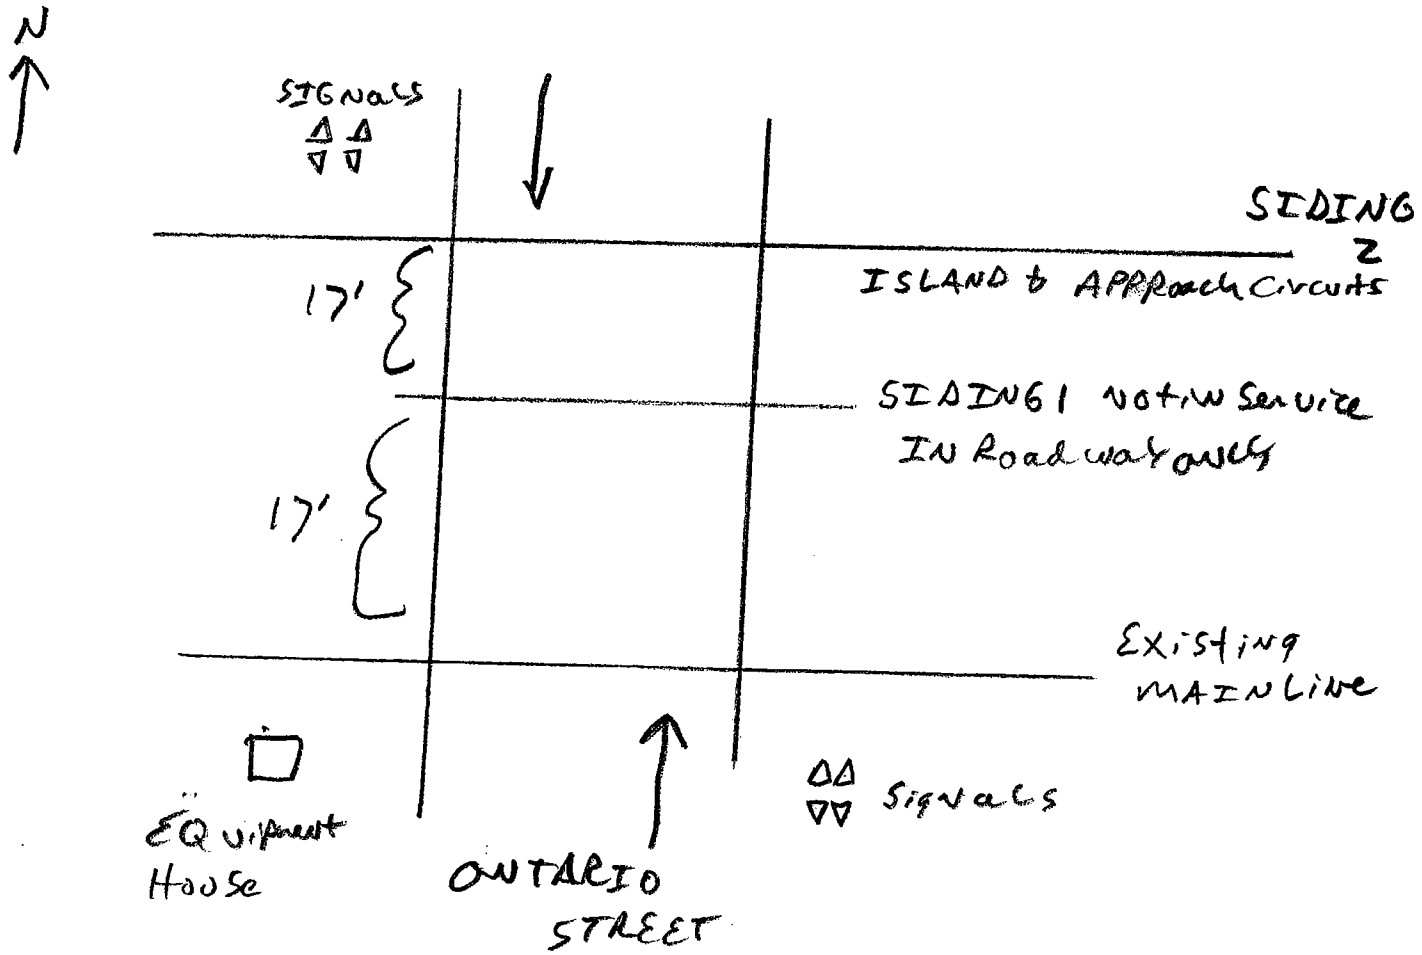 N
SIGNals
SIDING
2
ISLAND & APPRoach Circuits
17'
SIDING 1 Not in Service
IN Roadway only
17'
Existing
MAINLine
Signals
EQuipment
House
ONTARIO
STREET